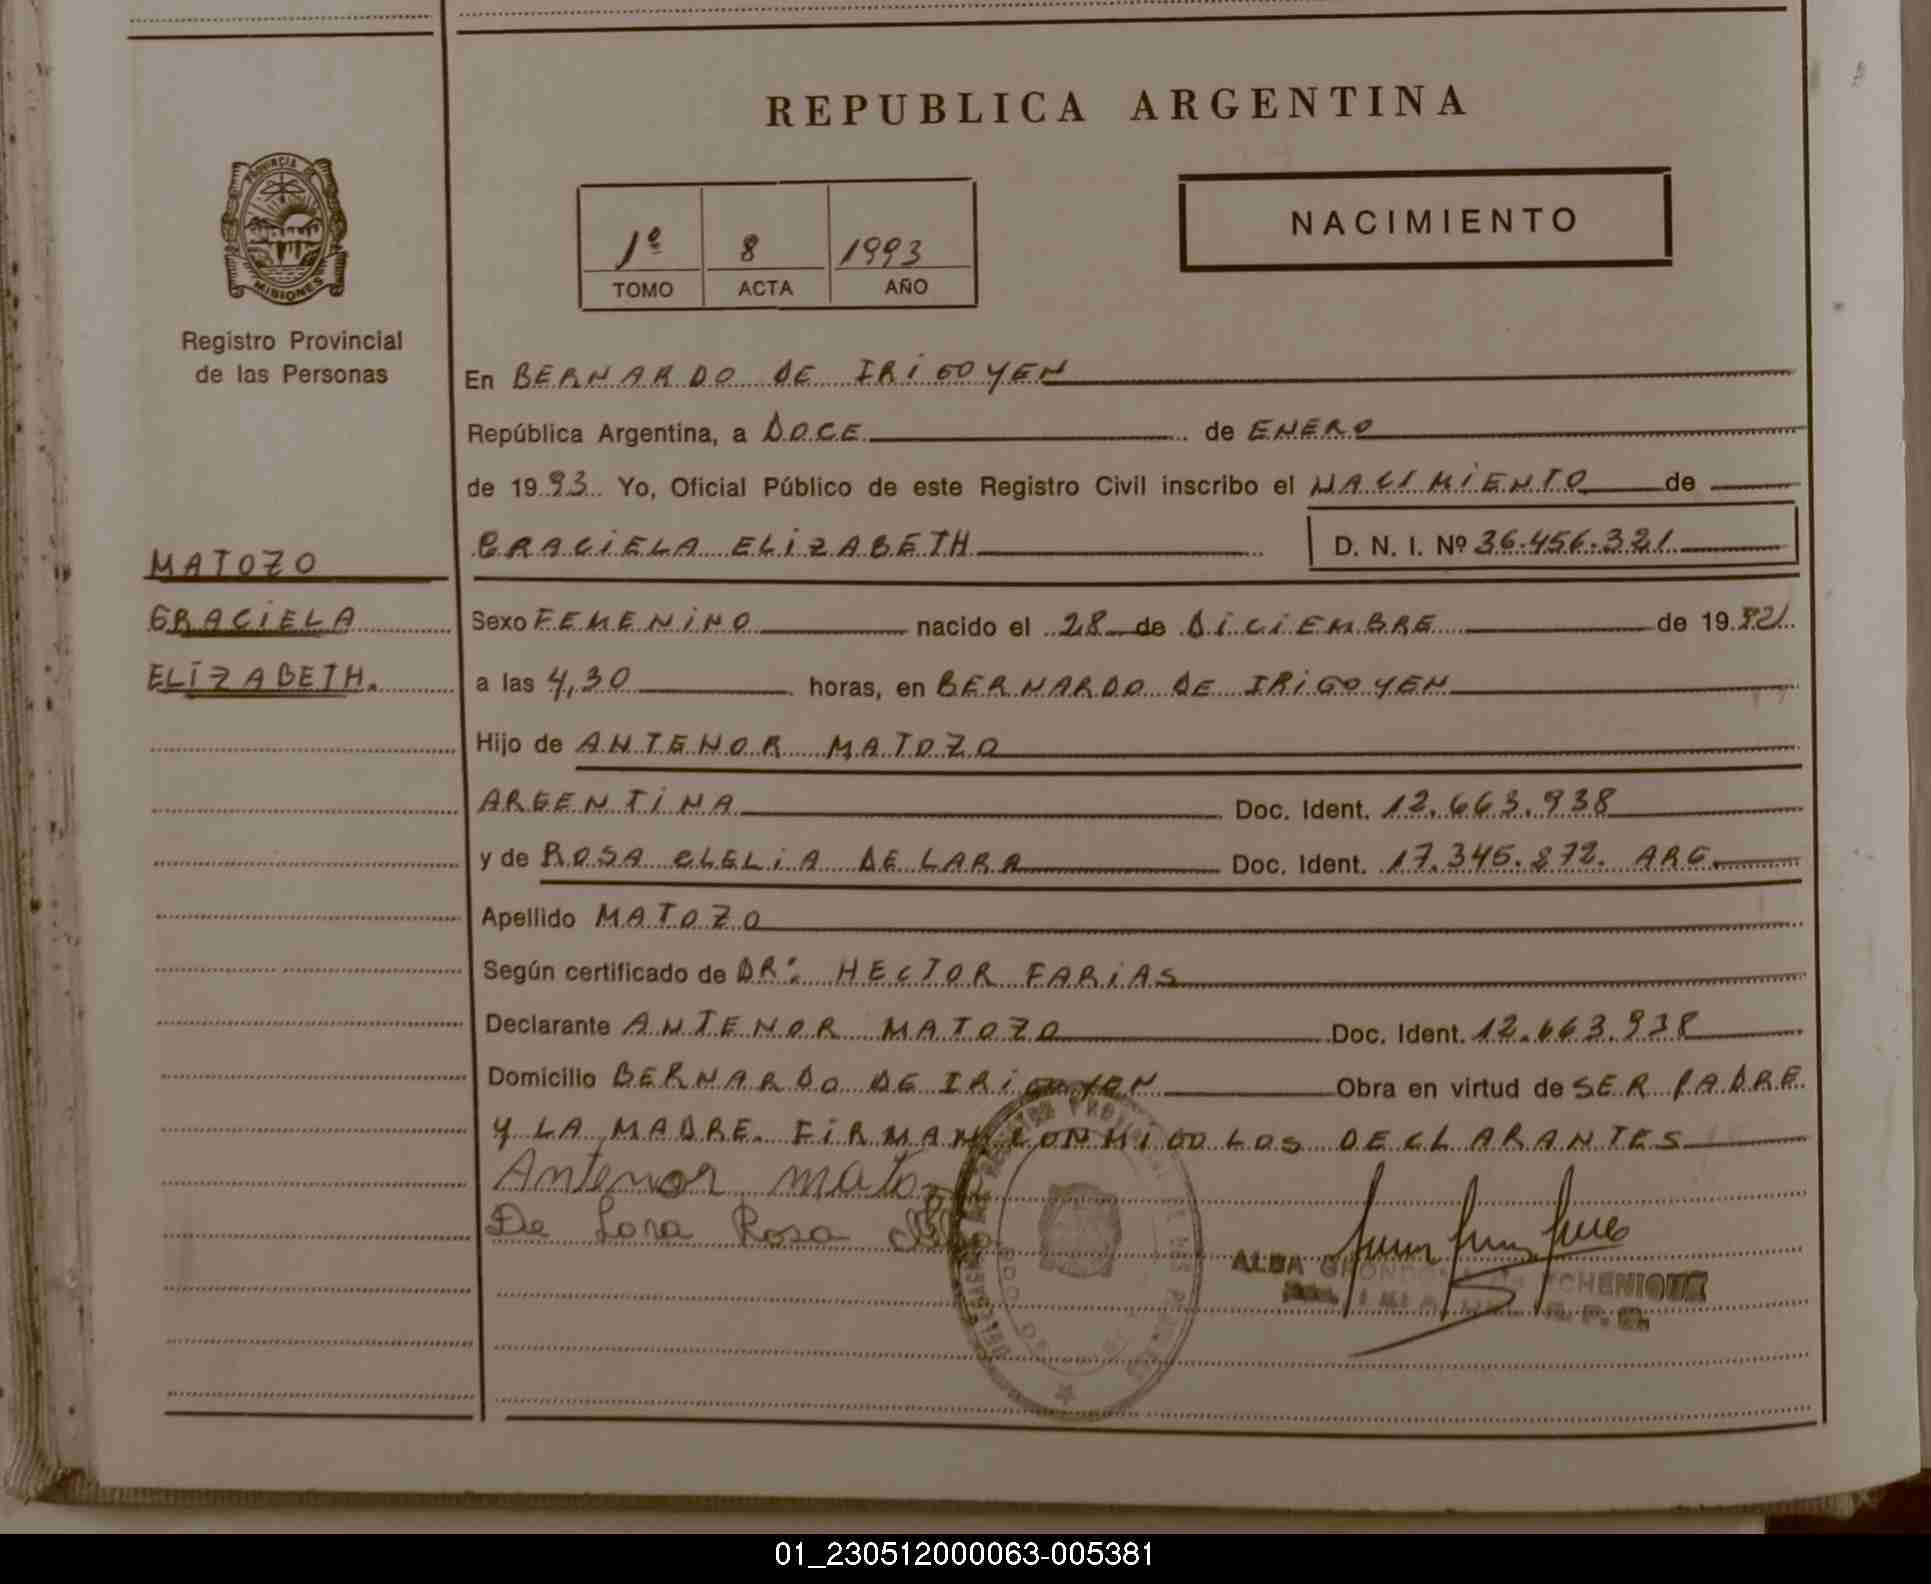 REPUBLICA ARGENTINA
PROVINCIA DE
MISIONES
Registro Provincial
de las Personas
1º 8 1993
TOMO ACTA AÑO
NACIMIENTO
En BERNARDO DE IRIGOYEN
República Argentina, a DOCE de ENERO
de 1993. Yo, Oficial Público de este Registro Civil inscribo el NACIMIENTO de
GRACIELA ELIZABETH D. N. I. Nº 36.456.321
MATOZO
GRACIELA
ELIZABETH.
Sexo FEMENINO nacido el 28 de DICIEMBRE de 1992
a las 4,30 horas, en BERNARDO DE IRIGOYEN
Hijo de ANTENOR MATOZO
ARGENTINA Doc. Ident. 12.663.938
y de ROSA CLELIA DE LARA Doc. Ident. 17.345.872. ARG.
Apellido MATOZO
Según certificado de DR: HECTOR FARIAS
Declarante ANTENOR MATOZO Doc. Ident. 12.663.938
Domicilio BERNARDO DE IRIGOYEN Obra en virtud de SER PADRE
Y LA MADRE. FIRMAN CONMIGO LOS DECLARANTES
Antenor mato
De Lara Rosa
ALBA
01_230512000063-005381